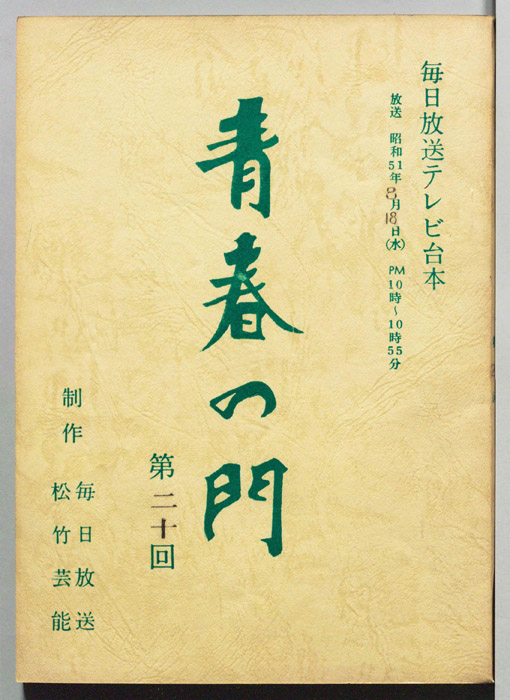 毎日放送テレビ台本
放送 昭和51年8月18日(水) PM10時~10時55分
青春の門
第二十回
制作 毎日放送
松竹芸能